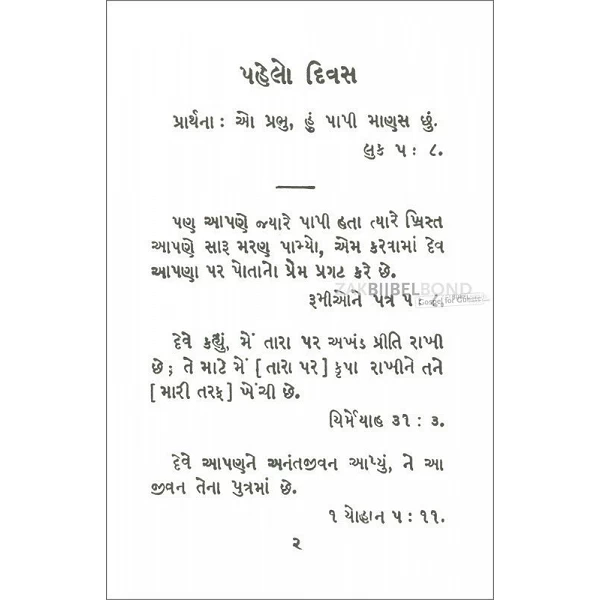 પહેલો દિવસ
પ્રાર્થના: ઓ પ્રભુ, હું પાપી માણસ છું.
લુક ૫: ૮.
પણ આપણે જ્યારે પાપી હતા ત્યારે ખ્રિસ્ત
આપણે સારૂ મરણ પામ્યો, એમ કરવામાં દેવ
આપણા પર પોતાનો પ્રેમ પ્રગટ કરે છે.
ZAKBIJBELBOND
રૂમીઓને પત્ર ૫: ૮.
દેવે કહ્યું, મેં તારા પર અખંડ પ્રીતિ રાખી
છે; તે માટે મેં [તારા પર] કૃપા રાખીને તને
[મારી તરફ] ખેંચી છે.
યિર્મેયાહ ૩૧: ૩.
દેવે આપણને અનંતજીવન આપ્યું, ને આ
જીવન તેના પુત્રમાં છે.
૧ યોહાન ૫: ૧૧.
૨